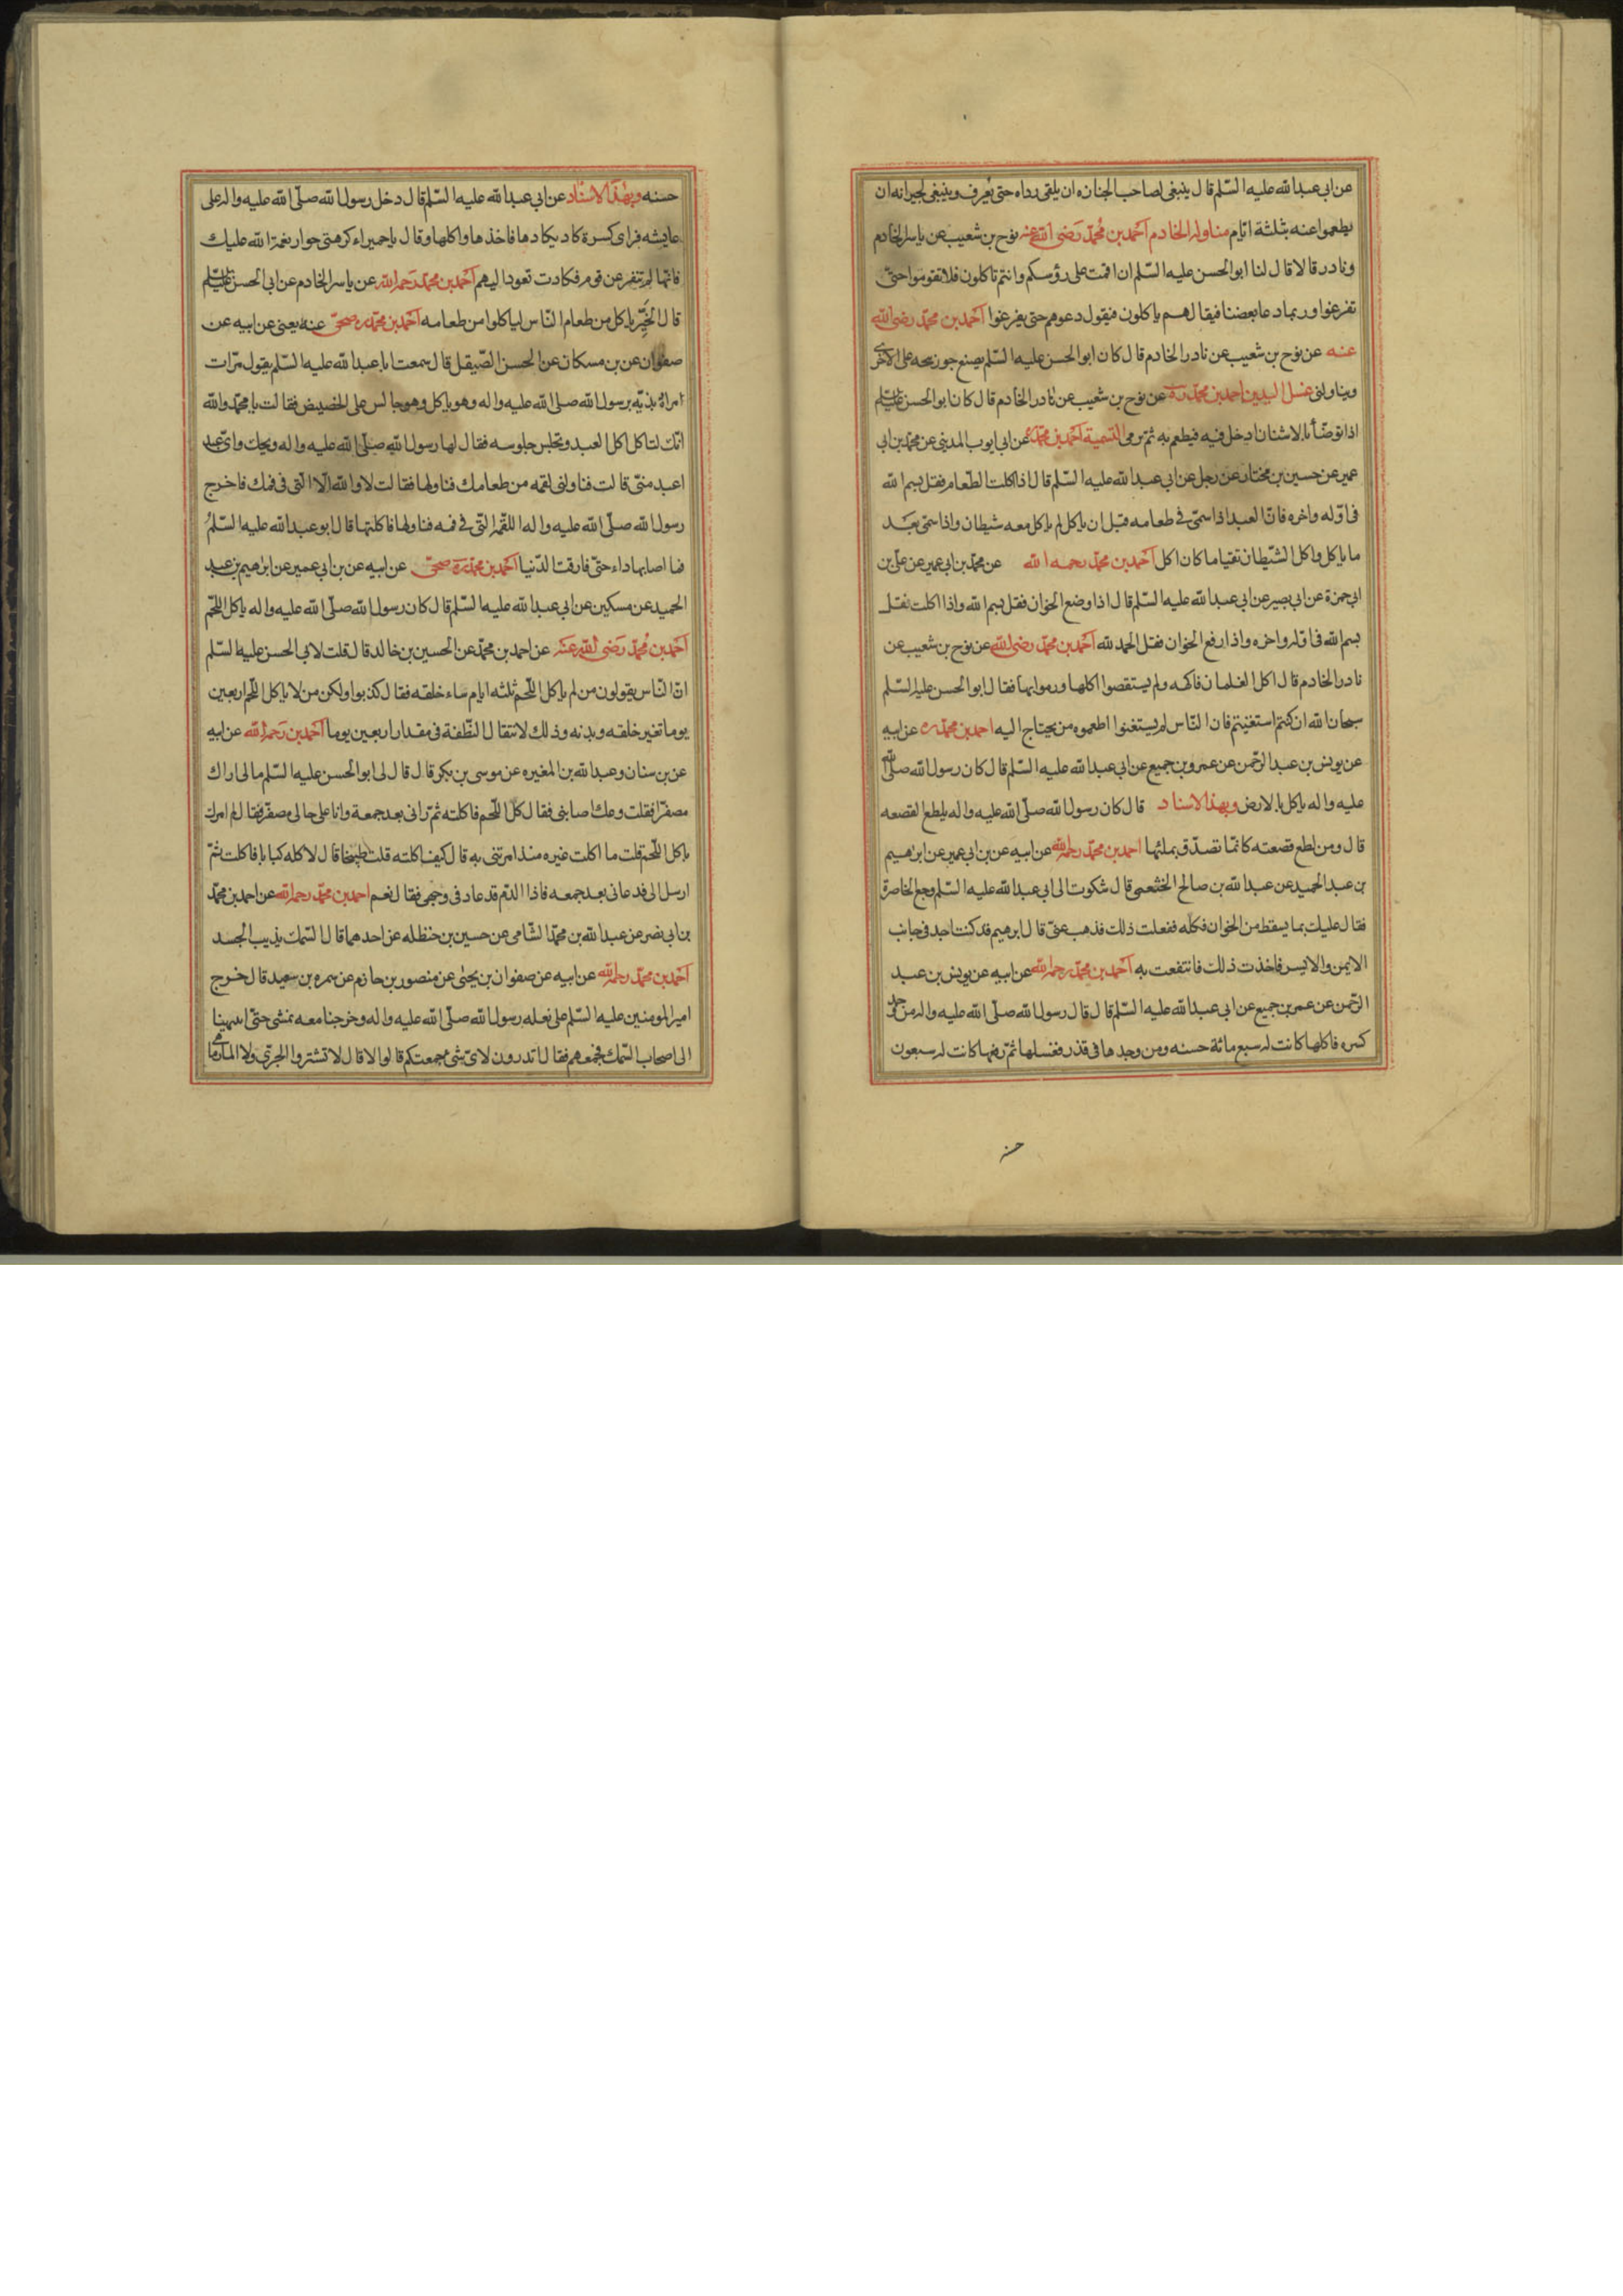 عن ابى عبدالله عليه السّلم قال ينبغى لصاحب الجنازه ان يلقى رداه حتى يُعرف وينبغى لجيرانه ان
يطعموا عنه بثلثة ايّام مناوله الخادم احمد بن محمّد رَضى الله عنه نوح بن شعيب عن ياسر الخادم
ونادر قالا قال لنا ابو الحسن عليه السّلم ان اقمت على رؤسكم وانتم تاكلون فلا تقوموا حتىّ
تفرغوا وربما دعا بعضنا فيقال لهم ياكلون فيقول دعوهم حتى يفرغوا احمد بن محمّد رضى الله
عنه عن نوح بن شعيب عن نادر الخادم قال كان ابو الحسن عليه السّلم يصنع جوزبجه على الاخرى
ويناولنى غسل اليدين احمد بن محمّد ره عن نوح بن شعيب عن نادر الخادم قال كان ابو الحسن عليه السلم
اذا توضّأ بالاشنان ادخل فيه فيطعم به ثمّ رمى التسمية احمد بن محمّد عن ابى ايوب المدينى عن محمّد بن ابى
عمير عن حسين بن مختار عن رجل عن ابى عبدالله عليه السّلم قال اذا اكلت الطّعام فقل بسم الله
فى اوّله واخره فانّ العبد اذا سمىّ فى طعامه قبل ان ياكل لم ياكل معه شيطان واذا سمىّ بَعَد
ما ياكل واكل الشّيطان تقيا ما كان اكل احمد بن محمّد رحمه الله عن محمّد بن ابى عمير عن علىّ بن
ابى حمزة عن ابى بصير عن ابى عبدالله عليه السّلم قال اذا وضع الخوان فقل بسم الله واذا اكلت فقل
بسم الله فى اوله واخره واذا رفع الخوان فقل الحمد لله احمد بن محمّد رضى الله عن نوح بن شعيب عن
نادر الخادم قال اكل الغلمان فاكهه ولم يستقصوا اكلها ورموا بها فقال ابو الحسن عليه السّلم
سبحان الله ان كنتم استغنيتم فانّ النّاس لم يستغنوا اطعموه من يحتاج اليه احمد بن محمّد ره عن ابيه
عن يونس بن عبد الرّحمن عن عمرو بن جميع عن ابى عبدالله عليه السّلم قال كان رسول الله صلىّ الله
عليه واله ياكل بالارض وبهذا الاسناد قال كان رسول الله صلّى الله عليه واله يلطع القصعه
قال ومن لطع قصعته كانمّا تصدّق بمثلها احمد بن محمّد رحمه الله عن ابيه عن بن ابى عمير عن ابراهيم
بن عبد الحميد عن عبدالله بن صالح الخثعمى قال شكوت الى ابى عبدالله عليه السّلم وجع الخاصرة
فقال عليك بما يسقط من الخوان فكله ففعلت ذلك فذهب عنىّ قال ابرهيم قد كنت اجد فى جانب
الايمن والايسر فاخذت ذلك فانتفعت به احمد بن محمّد رحمه الله عن ابيه عن يونس بن عبد
الرّحمن عن عمر بن جميع عن ابى عبدالله عليه السّلم قال قال رسول الله صلّى الله عليه واله من وجد
كسره فاكلها كانت له سبع مائة حسنه ومن وجدها فى قذر فغسلها ثمّ رفعها كانت له سبعون
حسنه
حسنه وبهذا الاسناد عن ابى عبدالله عليه السّلم قال دخل رسول الله صلّى الله عليه واله على
عايشه فراى كسرة كاد يكادها فاخذها واكلها وقال يا حميراء كرمى جوار نعم الله عليك
فانّها لم تنفر عن قوم فكادت تعود اليهم احمد بن محمّد رحمه الله عن ياسر الخادم عن ابى الحسن عليه السلم
قال الخيِّر ياكل من طعام النّاس لياكلوا من طعامه احمد بن محمّد ره عنه يعنى عن ابيه عن
صفوان عن بن مسكان عن الحسن الصّيقل قال سمعت ابا عبدالله عليه السّلم يقول مرّات
امراة بذيّه برسول الله صلى الله عليه واله وهو ياكل وهو جالس على الحضيض فقالت يا محمّد والله
انّك لتاكل اكل العبد وتجلس جلوسه فقال لها رسول الله صلّى الله عليه واله ويحك واىّ عبد
اعبد منىّ قالت فناولنى لقمه من طعامك فناولها فقالت لا والله الّا الّتى فى فمك فاخرج
رسول الله صلّى الله عليه واله اللقمه التّى فى فمه فناولها فاكلتها قال ابو عبدالله عليه السّلمُ
فما اصابها داء حتىّ فارقت الدّنيا احمد بن محمّد ره عن ابيه عن بن ابى عمير عن ابرهيم بن عبد
الحميد عن مسكين عن ابى عبدالله عليه السّلم قال كان رسول الله صلّى الله عليه واله ياكل اللّحم
احمد بن محُمّد رَضى الله عنه عن احمد بن محمّد عن الحسين بن خالد قال قلت لابى الحسن عليه السّلم
انّ النّاس يقولون من لم ياكل اللّحم ثلثه ايام ساء خلقه فقال كذبوا ولكن من لا ياكل اللّحم اربعين
يوما تغير خلقه وبدنه وذلك لانتقال النّطفة فى مقدار اربعين يوما احمد بن رَحمه الله عن ابيه
عن بن سنان وعبدالله بن المغيره عن موسى بن بكر قال قال لى ابو الحسن عليه السّلم مالى اراك
مصفرّا فقلت وعك اصابنى فقال كل اللّحم فاكلته ثمّ رانى بعد جمعة وانا على حالى مصفرّ فقال الم امرك
باكل اللّحم قلت ما اكلت غيره منذ امرتنى به قال كيف اكلته قلت طبيخا قال لا كله كبابا فاكلت ثمّ
ارسل الىّ فدعانى بعد جمعه فاذا الدّم قد عاد فى وجهى فقال نعم احمد بن محمّد رحمه الله عن احمد بن محمّد
بن ابى نصر عن عبدالله بن محمّد الشّامى عن حسين بن حنظله عن احدهما قال السّمك يذيب الجسد
احمد بن محمّد رحمه الله عن ابيه عن صفوان بن يحيى عن منصور بن حازم عن سمره بن سعيد قال خرج
امير المومنين عليه السّلم على بغله رسول الله صلّى الله عليه واله وخرجنا معه نمشى حتىّ انتهينا
الى اصحاب السّمك فجمعهم فقال تدرون لاىّ شى جمعتكم قالوا لا قال لا تشتروا الجرّى ولا المارماهى